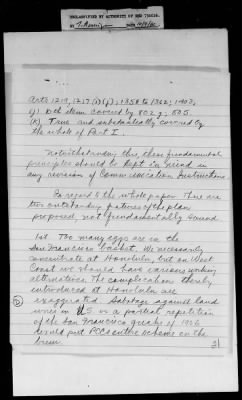 DECLASSIFIED BY AUTHORITY OF NND 730026.
By
DATE
Arts 1219, 1217 (i)(j); 1358 to 1362; 1403;
(j) 10th item covered by 802 g; 505.
(k) True and substantially covered by
the whole of Part I
Notwithstanding this, these fundamental
principles should be kept in mind in
any revision of Communication Instructions
In regard to the whole paper There are
two outstanding features of the plan
proposed, not fundamentally sound
1st Too many eggs are in the
San Francisco basket. We necessarily
concentrate at Honolulu, but on West
Coast we should have various working
alternatives. The complications thereby
introduced at Honolulu are
exaggerated. Sabotage against land
wires in US or a partial repetition
of the San Francisco quake of 1906
would put PCCs entire scheme on the
bum.
2
31